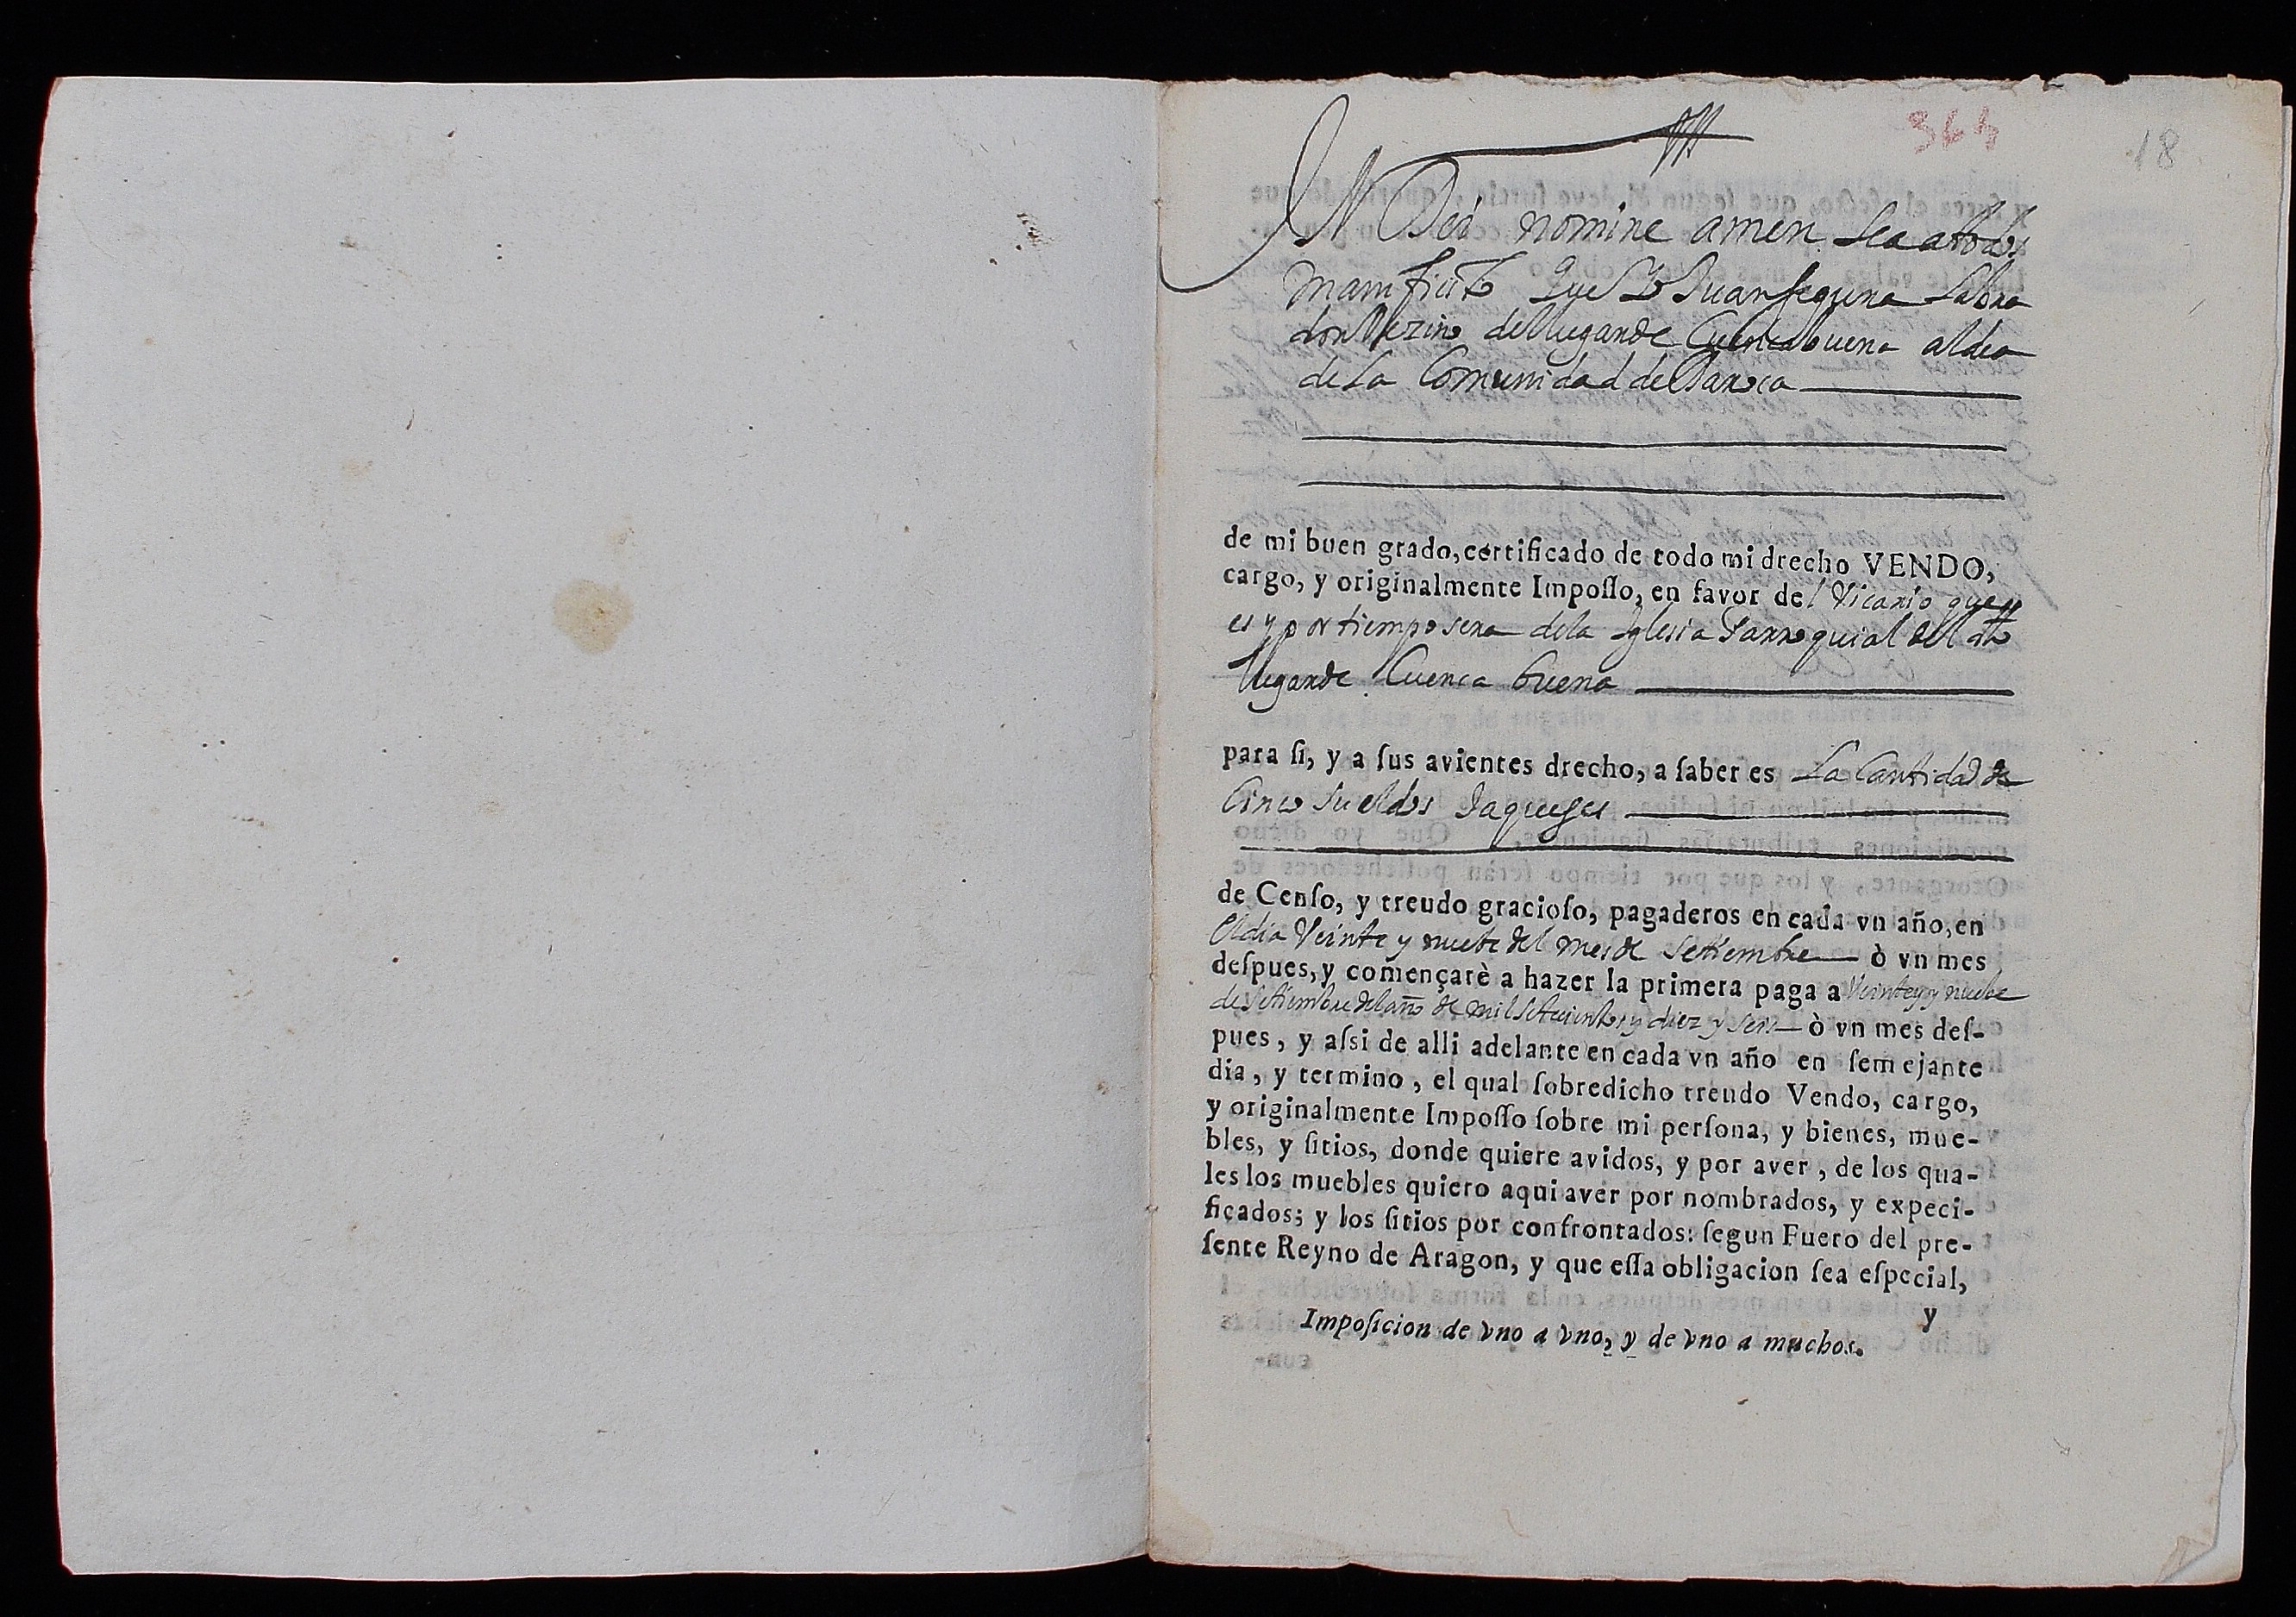 364
18
IN Dei nomine amen Sea atodos
manifiesto Que Yo Juan Seguna Labra
dor Vezino del lugar de Cuencabuena aldea
de la Comunidad de Daroca
de mi buen grado, certificado de todo mi drecho VENDO,
cargo, y originalmente Impoſſo, en favor del Vicario que
es y por tiempo sera dela Iglesia Parroquial del dho
lugar de Cuenca buena
para ſi, y a ſus avientes drecho, a ſaber es La Cantidad de
Cinco Sueldos Jaqueses
de Cenſo, y treudo gracioſo, pagaderos en cada vn año, en
el dia Veinte y nuebe del mes de Setiembre ò vn mes
deſpues, y començarè a hazer la primera paga a Veinte y nuebe
de Setiembre del año de mil Setecientos y diez y seis ò vn mes deſ-
pues, y aſsi de alli adelante en cada vn año en ſemejante
dia, y termino, el qual ſobredicho treudo Vendo, cargo,
y originalmente Impoſſo ſobre mi perſona, y bienes, mue-
bles, y ſitios, donde quiere avidos, y por aver, de los qua-
les los muebles quiero aqui aver por nombrados, y expeci-
ficados; y los ſitios por confrontados: ſegun Fuero del pre-
ſente Reyno de Aragon, y que eſſa obligacion ſea eſpecial,
y
Impoſicion de vno a vno, y de vno a muchos.